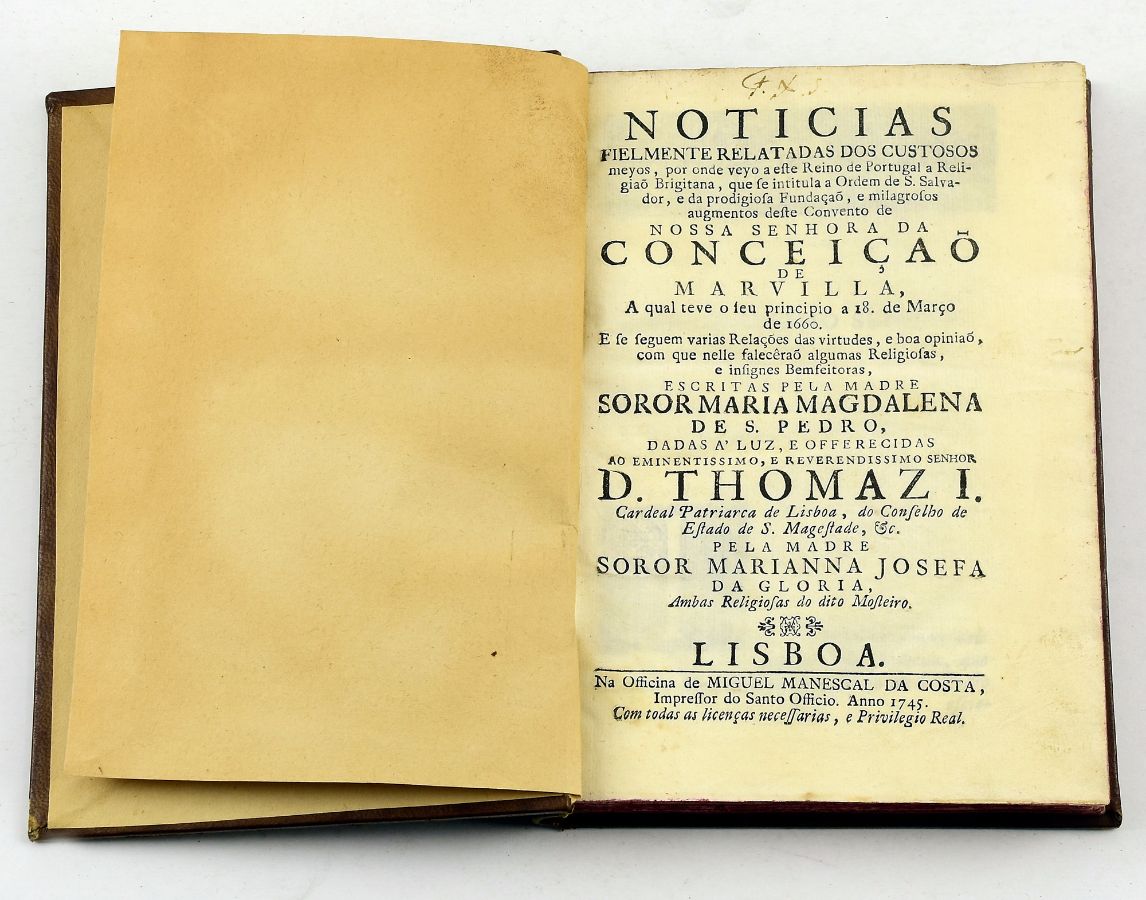 NOTICIAS
FIELMENTE RELATADAS DOS CUSTOSOS
meyos, por onde veyo a eſte Reino de Portugal a Reli-
giaõ Brigitana, que ſe intitula a Ordem de S. Salva-
dor, e da prodigioſa Fundaçaõ, e milagroſos
augmentos deſte Convento de
NOSSA SENHORA DA
CONCEIÇAÕ
DE
MARVILLA,
A qual teve o ſeu principio a 18. de Março
de 1660.
E ſe ſeguem varias Relações das virtudes, e boa opiniaõ,
com que nelle falecêraõ algumas Religioſas,
e inſignes Bemfeitoras,
ESCRITAS PELA MADRE
SOROR MARIA MAGDALENA
DE S. PEDRO,
DADAS A' LUZ, E OFFERECIDAS
AO EMINENTISSIMO, E REVERENDISSIMO SENHOR
D. THOMAZ I.
Cardeal Patriarca de Lisboa, do Conſelho de
Eſtado de S. Mageſtade, &c.
PELA MADRE
SOROR MARIANNA JOSEFA
DA GLORIA,
Ambas Religioſas do dito Moſteiro.
LISBOA.
Na Officina de MIGUEL MANESCAL DA COSTA,
Impreſſor do Santo Officio. Anno 1745.
Com todas as licenças neceſſarias, e Privilegio Real.